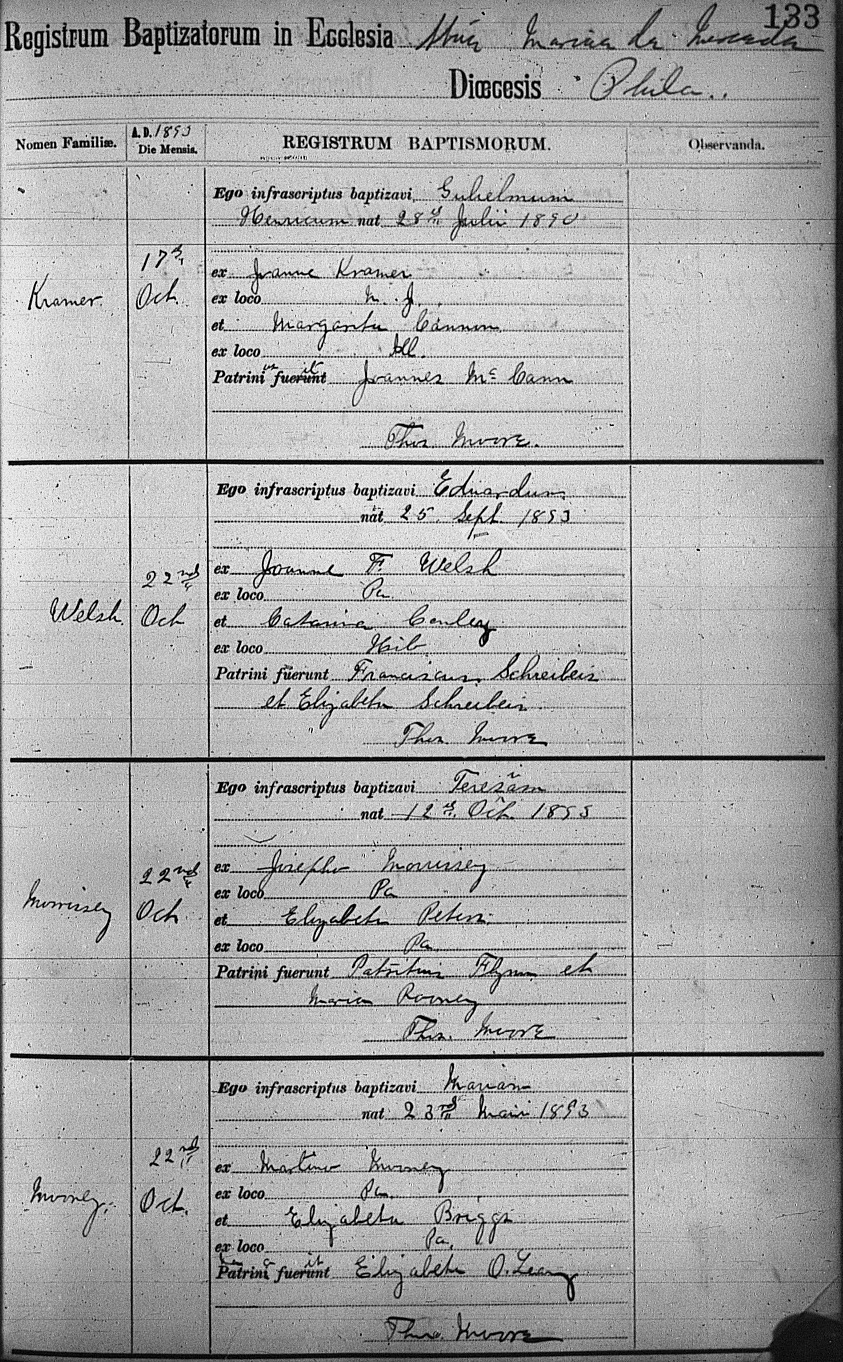 133
Registrum Baptizatorum in Ecclesia Maria de Mercede
Diœcesis Phila.
Nomen Familiæ. A. D. 1893 Die Mensis. REGISTRUM BAPTISMORUM. Observanda.
Ego infrascriptus baptizavi Gulielmum
Henricum nat 28th Julii 1890
17th
ex Joanne Kramer
Kramer Oct. ex loco N. J.
et Margarita Cannon
ex loco
Patrini fuerunt Joannes Mc Cann
Thos. Moore.
Ego infrascriptus baptizavi Eduardum
nat 25. Sept. 1893
22nd ex Joanne F. Welsh
ex loco Pa
Welsh Oct et Catarina Conley
ex loco Hib.
Patrini fuerunt Franciscus Schreibeis
et Elizabeth Schreibeis.
Thos. Moore
Ego infrascriptus baptizavi Teresam
nat 12th Oct. 1893
22nd ex Josepho Morrissey
ex loco Pa
Morrissey Oct et Elizabeth Peters
ex loco Pa.
Patrini fuerunt Patritius Flynn et
Maria Rooney
Thos. Moore
Ego infrascriptus baptizavi Mariam
nat 23rd Maii 1893
22nd ex Martino Mooney
ex loco Pa.
Mooney. Oct. et Elizabeth Briggs
ex loco Pa.
Patrini fuerunt Elizabeth O.Leary
Thos. Moore